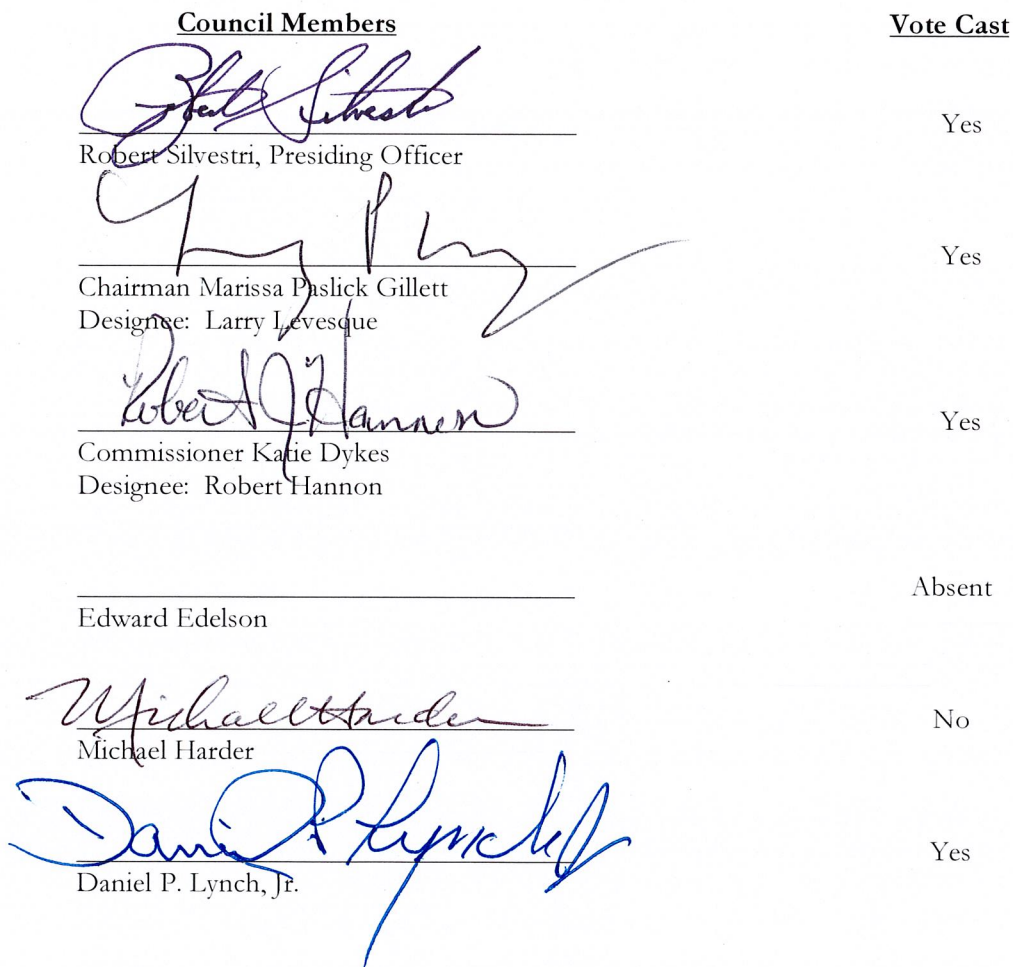 Council Members Vote Cast
Robert Silvestri
Yes
Robert Silvestri, Presiding Officer
Yes
Chairman Marissa Paslick Gillett
Designee: Larry Levesque
Robert J Hannon
Yes
Commissioner Katie Dykes
Designee: Robert Hannon
Absent
Edward Edelson
Michael Harder
No
Michael Harder
Daniel P Lynch Jr
Yes
Daniel P. Lynch, Jr.